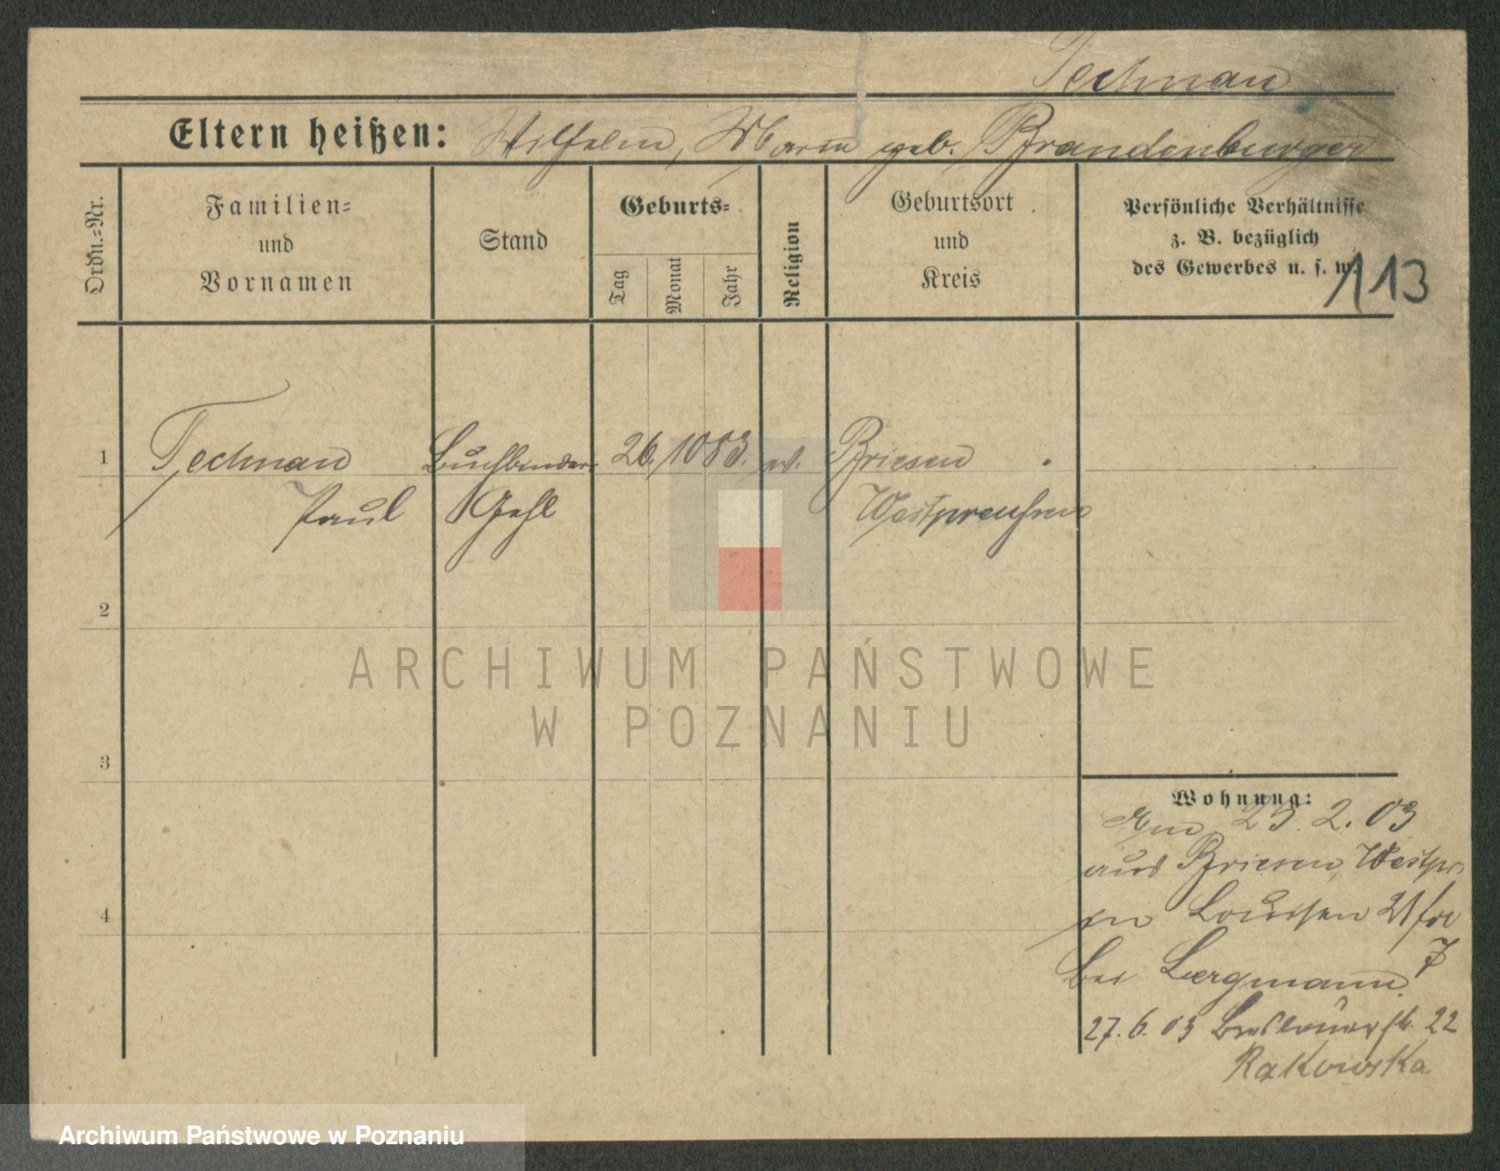 Technau
Eltern heißen: Wilhelm, Marie geb. Brandenburger
Ordn.-Nr.
Familien-
und
Vornamen
Stand
Geburts-
Tag
Monat
Jahr
Religion
Geburtsort
und
Kreis
Persönliche Verhältnisse
z. B. bezüglich
des Gewerbes u. s. w.
113
1 Technau Buchbinder 26. 10 83. ev. Briesen
Paul Gehl Westpreußen
2
ARCHIWUM PAŃSTWOWE
W POZNANIU
3
Wohnung:
2. 03
aus Briesen, Westpr.
4
bei Bergmann.
7
27. 6. 03 22
Rakowska
Archiwum Państwowe w Poznaniu